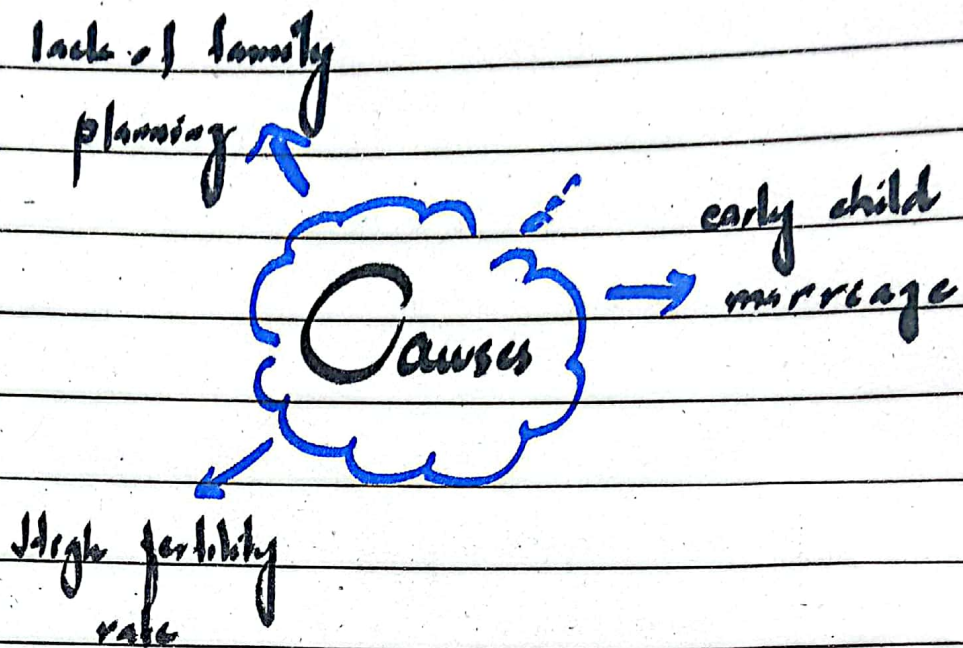 lack of family
planning
early child
marriage
Causes
High fertility
rate